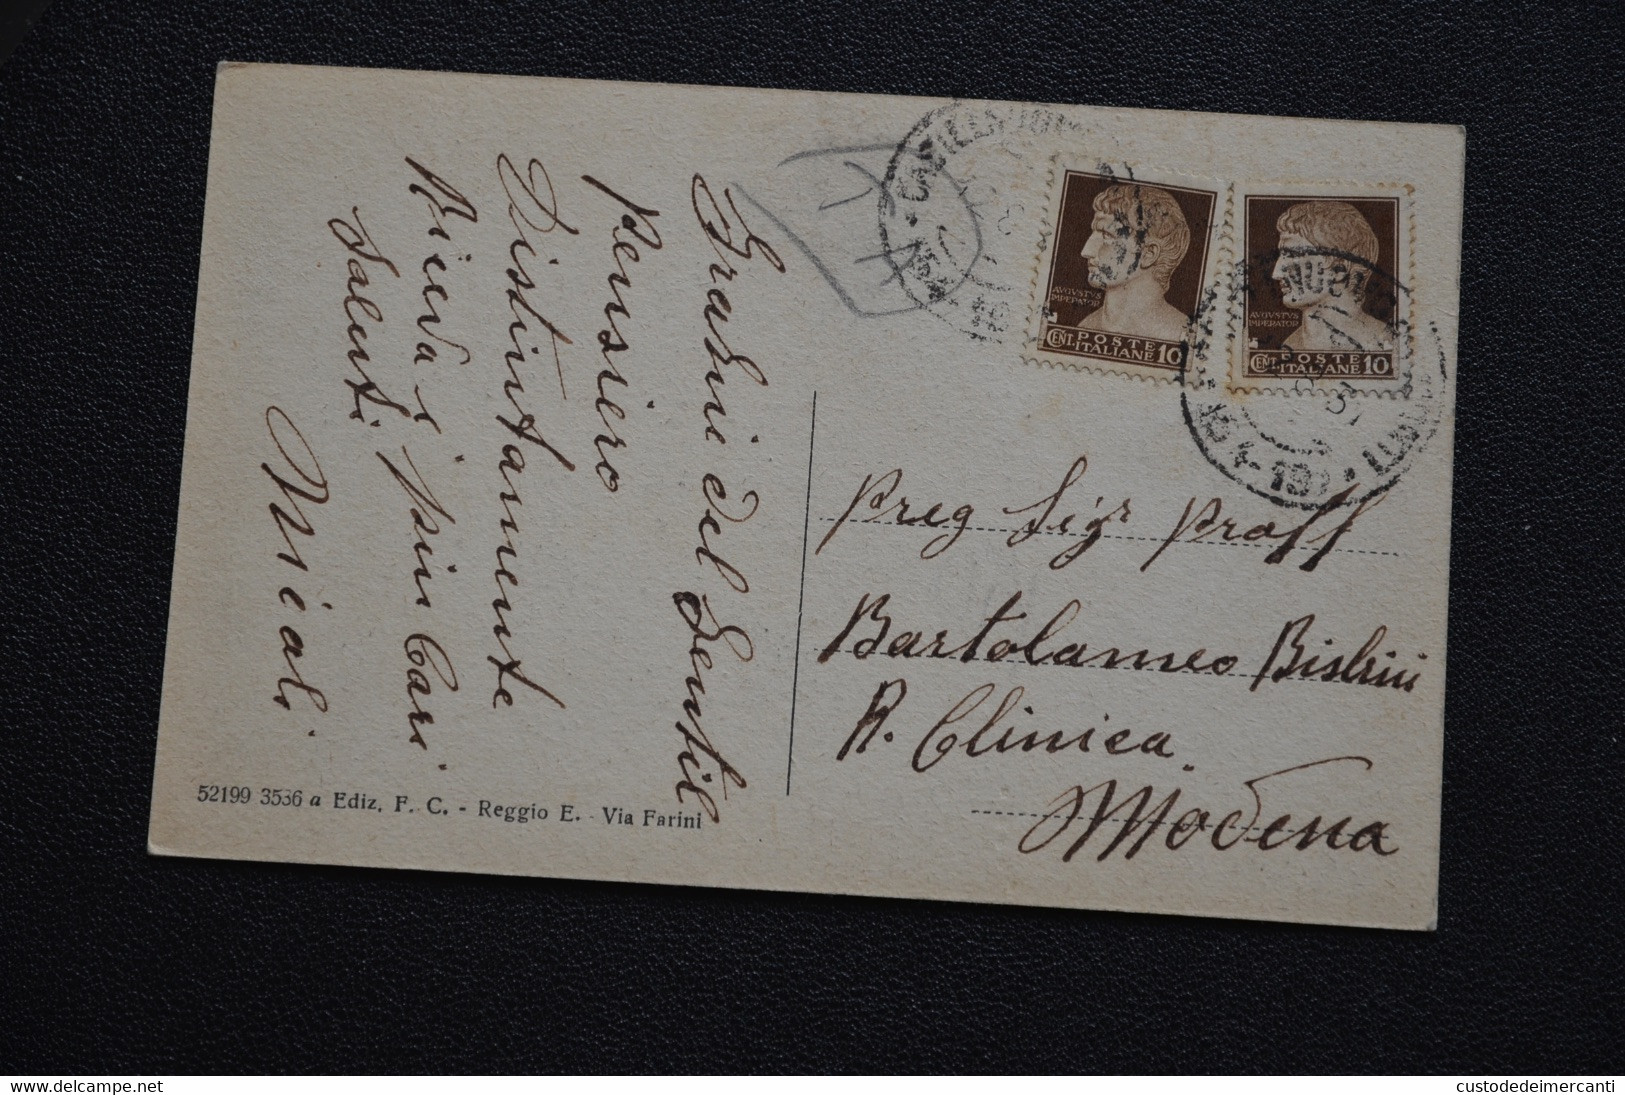 Grazie del Gentil
pensiero
Distintamente
Riceva i più Cari
Saluti
Micali
52199 3536 a Ediz. F. C. - Reggio E. - Via Farini
AVGVSTVS
IMPERATOR
POSTE
CENT. ITALIANE 10
AVGVSTVS
IMPERATOR
POSTE
CENT. ITALIANE 10
Preg Sigr Proff
Bartolameo
R. Clinica
Modena
delcampe.net
custodedeimercanti